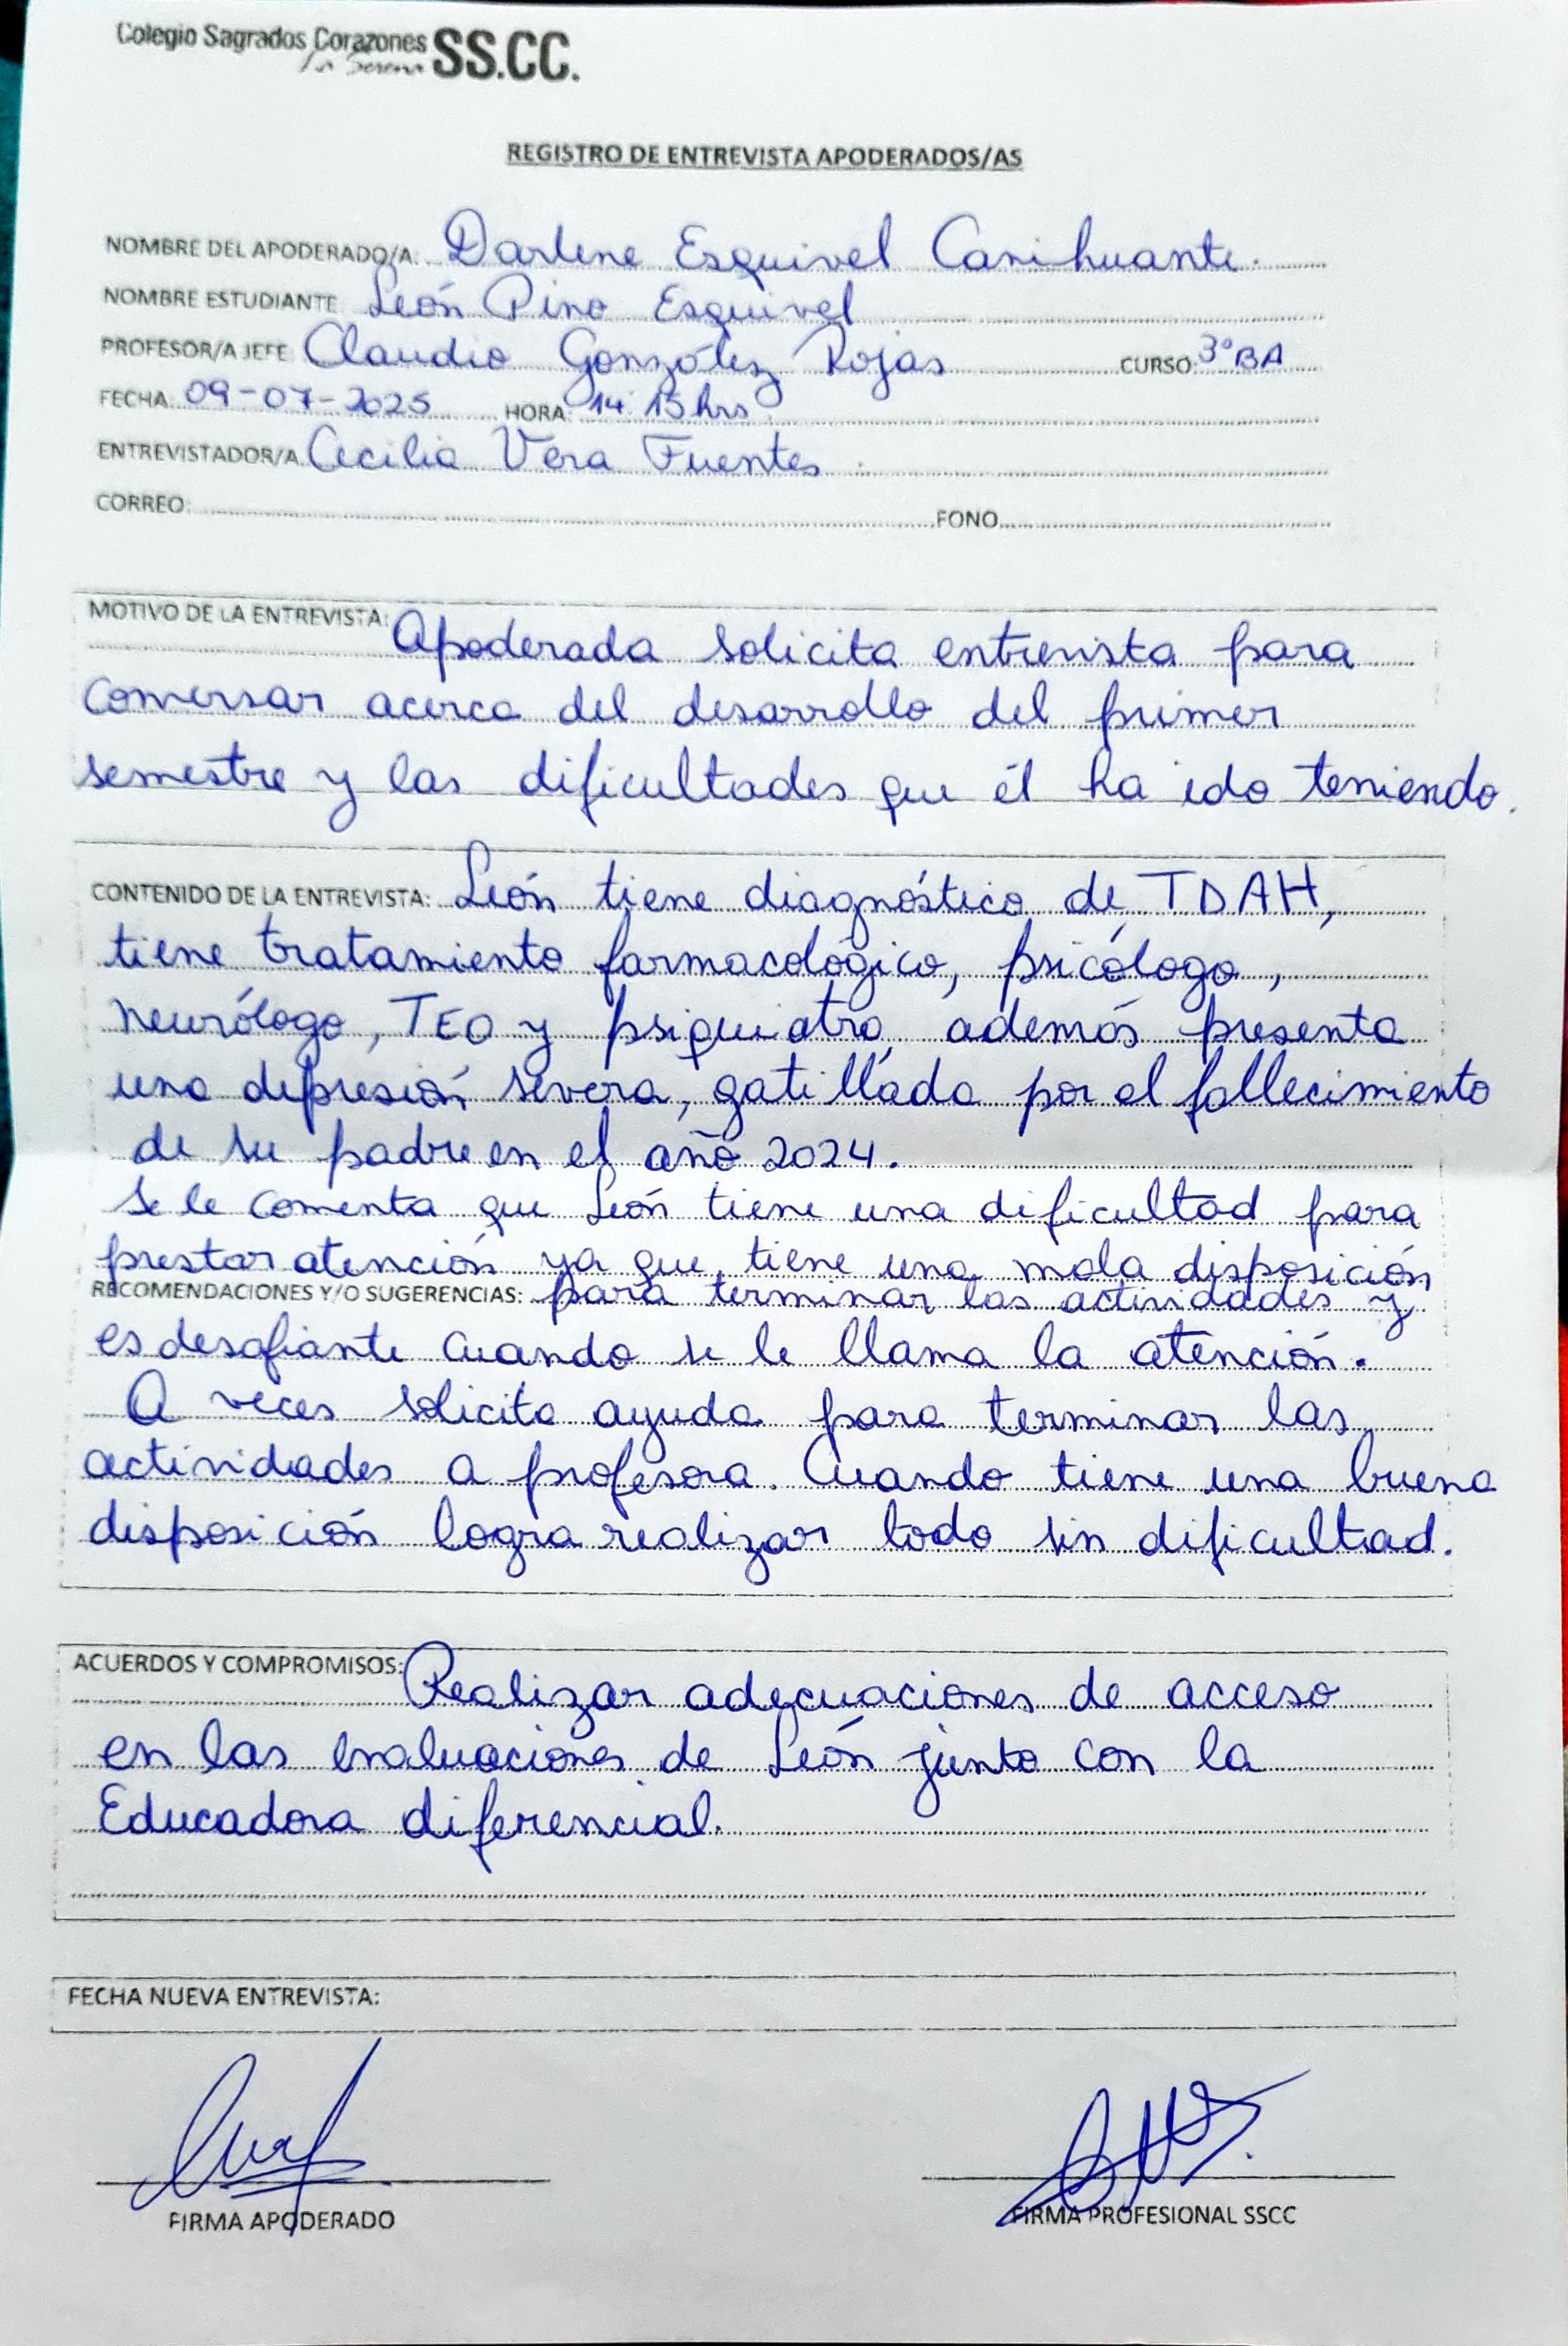 Colegio Sagrados Corazones SS.CC.
La Serena
REGISTRO DE ENTREVISTA APODERADOS/AS
NOMBRE DEL APODERADO/A: Darlene Esquivel Carihuante.
NOMBRE ESTUDIANTE León Pino Esquivel
PROFESOR/A JEFE Claudio González Rojas CURSO: 3°BA
FECHA: 09-07-2025 HORA: 14:15 hrs.
ENTREVISTADOR/A Cecilia Vera Fuentes.
CORREO: FONO
MOTIVO DE LA ENTREVISTA: Apoderada solicita entrevista para
conversar acerca del desarrollo del primer
semestre y las dificultades que él ha ido teniendo.
CONTENIDO DE LA ENTREVISTA: León tiene diagnóstico de TDAH,
tiene tratamiento farmacológico, psicólogo,
neurólogo, TEO y psiquiatra, además presenta
una depresión severa, gatillada por el fallecimiento
de su padre en el año 2024.
Se le comenta que León tiene una dificultad para
prestar atención ya que tiene una mala disposición
RECOMENDACIONES Y/O SUGERENCIAS: para terminar las actividades y
es desafiante cuando se le llama la atención.
A veces solicita ayuda para terminar las
actividades a profesora. Cuando tiene una buena
disposición logra realizar todo sin dificultad.
ACUERDOS Y COMPROMISOS: Realizar adecuaciones de acceso
en las evaluaciones de León junto con la
Educadora diferencial.
FECHA NUEVA ENTREVISTA:
FIRMA APODERADO FIRMA PROFESIONAL SSCC